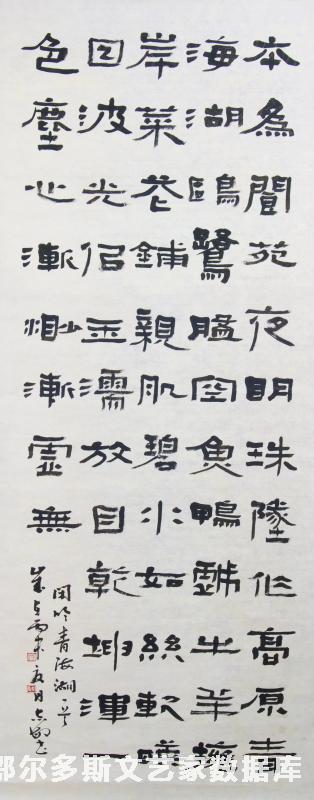 本為閬苑夜明珠墜作高原青
海湖鷗鷺空魚鴨戲牛羊擁
岸菜花鋪親肌碧水如絲軟
日波光侣玉濡放目乾坤渾一
色塵心漸渺漸虛無
閑吟青海湖一首
歲在丙月志書
鄂尔多斯文艺家数据库